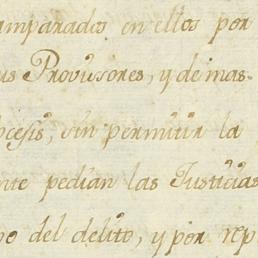 amparados en ellos por
us Provisores, y demas-
ocesis, sin permitir la
nte pedian las Justicias
po del delito, y por rep